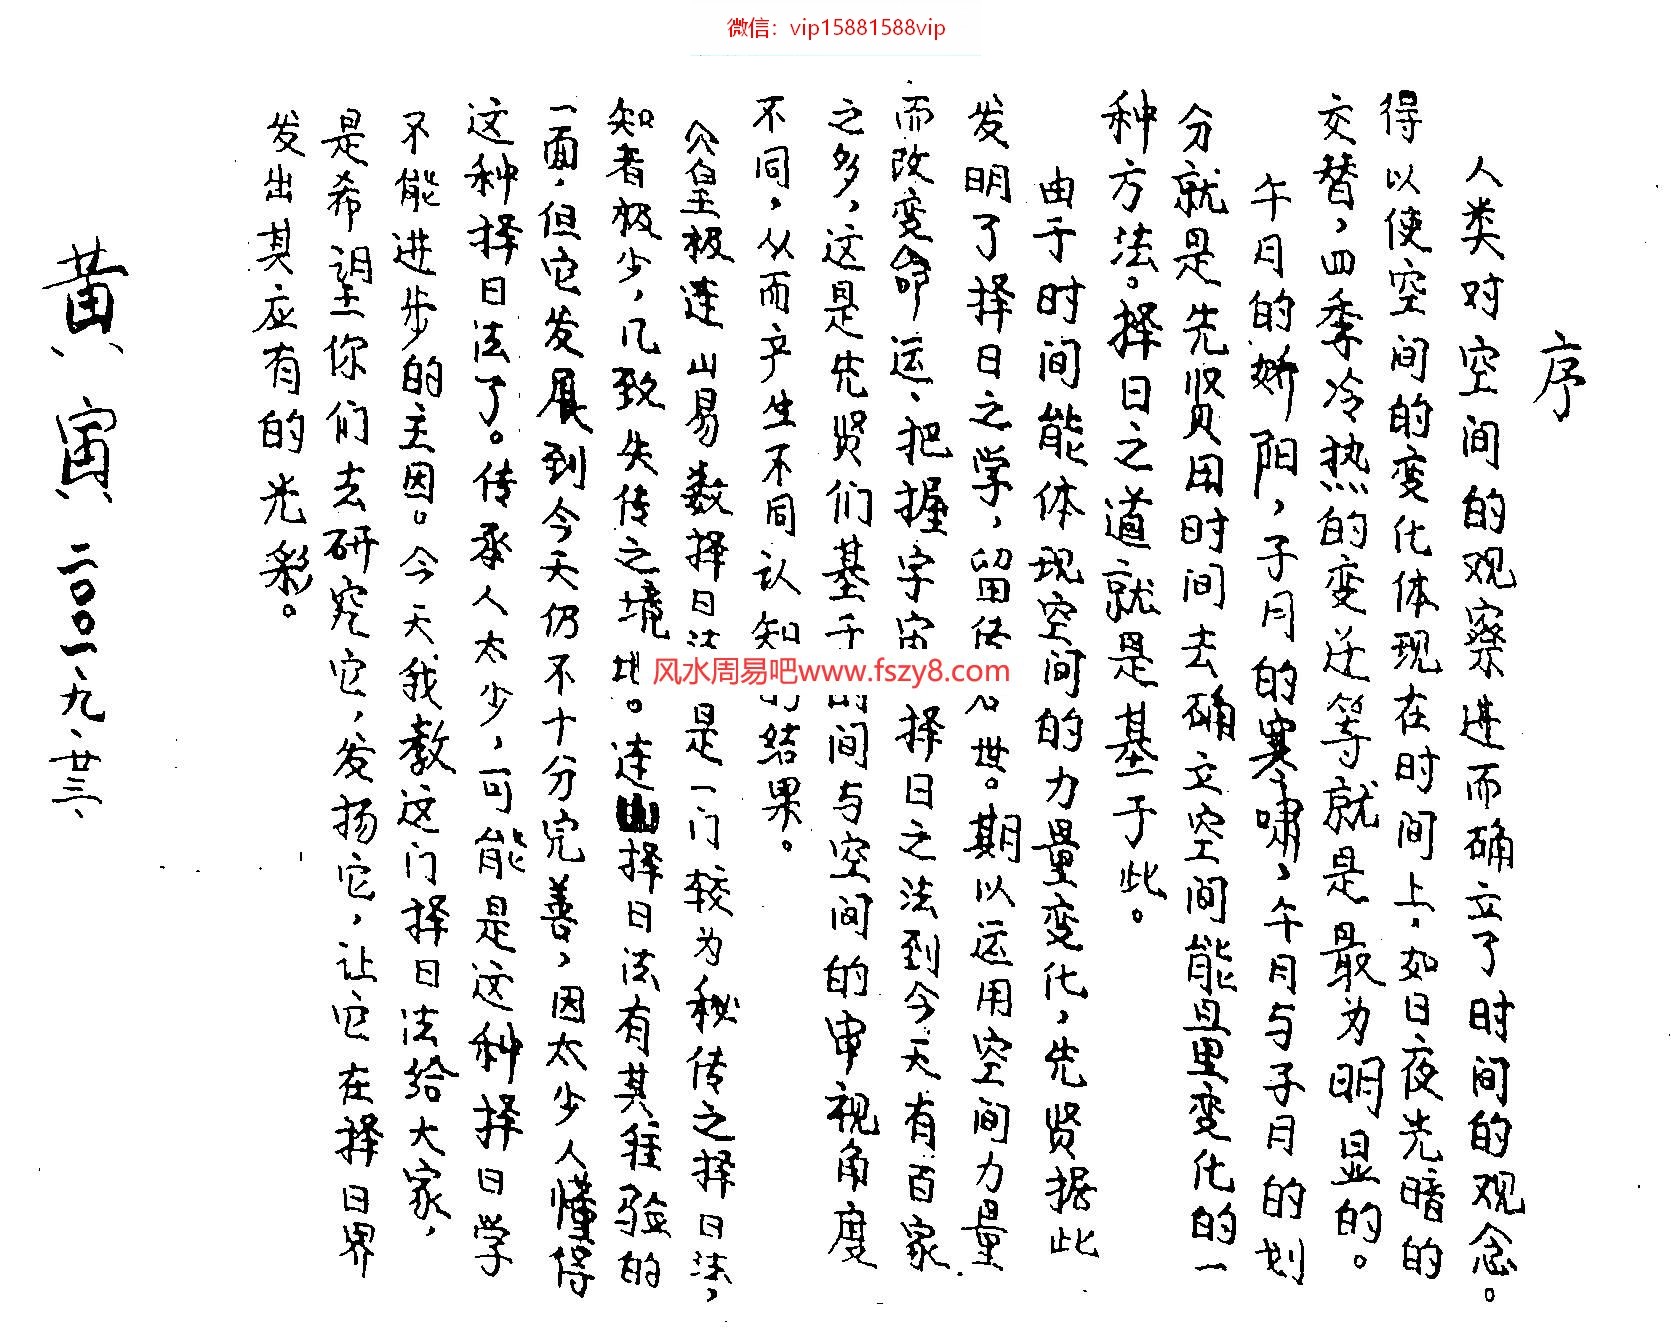 微信：vip15881588vip
序
人类对空间的观察进而确立了时间的观念。
得以使空间的变化体现在时间上，如日夜光暗的
交替，四季冷热的变迁等就是最为明显的。
午月的娇阳，子月的寒啸，午月与子月的划
分就是先贤用时间去确立空间能量变化的一
种方法。择日之道就是基于此。
由于时间能体现空间的力量变化，先贤据此
发明了择日之学，留传世。期以运用空间力量
而改变命运、把握宇宙择日之法到今天有百家
之多，这是先贤们基于间与空间的审视角度
不同，从而产生不同认知的结果。
穴皇极连山易数择日法是一门较为秘传之择日法，
知者极少，几致失传之境地。连山择日法有其经验的
一面，但它发展到今天仍不十分完善，因太少人懂得
这种择日法了。传承人太少，可能是这种择日学
不能进步的主因。今天我教这门择日法给大家，
是希望你们去研究它，发扬它，让它在择日界
发出其应有的光彩。
黄寅 二〇〇一、九、廿三、
风水周易吧www.fszy8.com